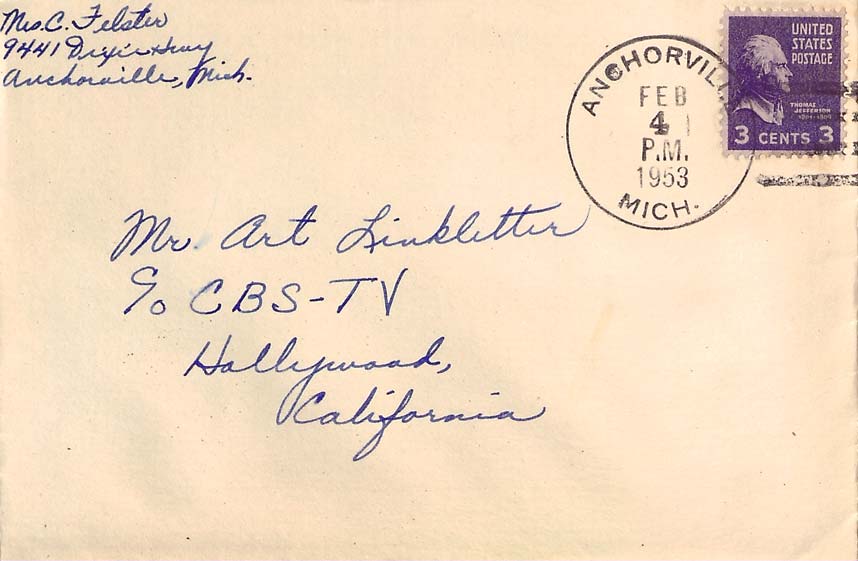 Mrs. C. Felster
9441 Dixie Hwy
Anchorville, Mich.
ANCHORVILL
FEB
4
P.M.
1953
MICH.
UNITED
STATES
POSTAGE
THOMAS
JEFFERSON
3 CENTS 3
Mr. Art Linkletter
c/o CBS-TV
Hollywood,
California